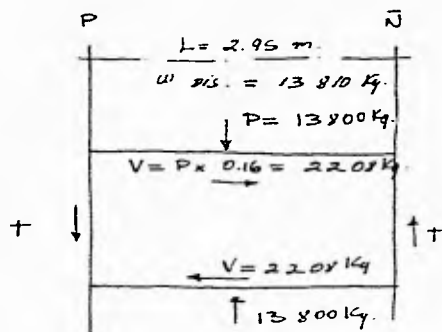 P N̄
L = 2.95 m.
W dis. = 13 810 Kg.
P = 13 800 Kg.
V = P x 0.16 = 2208 Kg.
+ +
V = 2208 Kg
13 800 Kg.